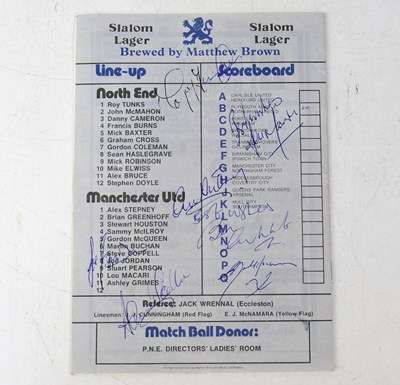 Slalom Lager
Slalom Lager
Brewed by Matthew Brown
Line-up
North End
1 Roy TUNKS
2 John McMAHON
3 Danny CAMERON
4 Francis BURNS
5 Mick BAXTER
6 Graham CROSS
7 Gordon COLEMAN
8 Sean HASLEGRAVE
9 Mick ROBINSON
10 Mike ELWISS
11 Alex BRUCE
12 Stephen DOYLE
Manchester Utd
1 Alex STEPNEY
2 Brian GREENHOFF
3 Stewart HOUSTON
4 Sammy McILROY
5 Gordon McQUEEN
6 Martin BUCHAN
7 Steve COPPELL
8 Joe JORDAN
9 Stuart PEARSON
10 Lou MACARI
11 Ashley GRIMES
12
Scoreboard
A CARLISLE UNITED
HEREFORD
B PLYMOUTH
C
D
E
F BIRMINGHAM CITY
IPSWICH TOWN
G
NOTTINGHAM FOREST
H MIDDLESBROUGH
COVENTRY CITY
J QUEENS PARK RANGERS
ARSENAL
K HULL CITY
SOUTHAMPTON
L
M
N
O
P
Best wishes
Referee: JACK WRENNAL (Eccleston)
Linesmen: CUNNINGHAM (Red Flag) E. J. McNAMARA (Yellow Flag)
Match Ball Donor:
P.N.E. DIRECTORS' LADIES' ROOM